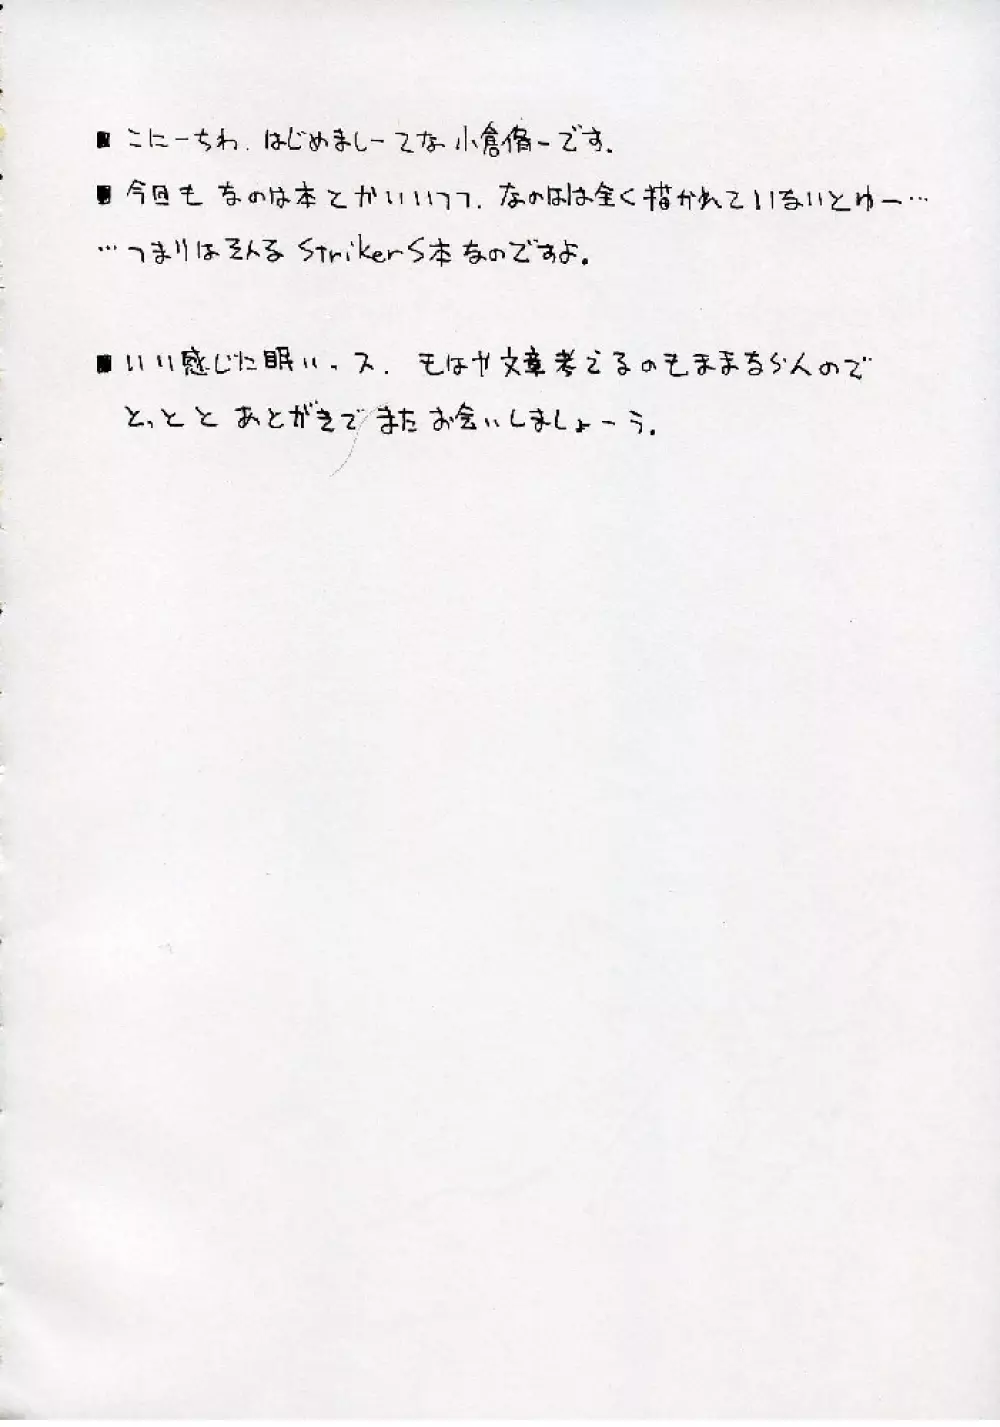 ■ こにーちわ. はじめましーてな 小倉脩一です.
■ 今回も なのは本とかいいつつ. なのはは全く描かれていないとゆー…
… つまりはそんな StrikerS本なのですよ.
■ いい感じに眠いっス. もはや文章考えるのもままならんので
とっとと あとがきで また お会いしましょーう.